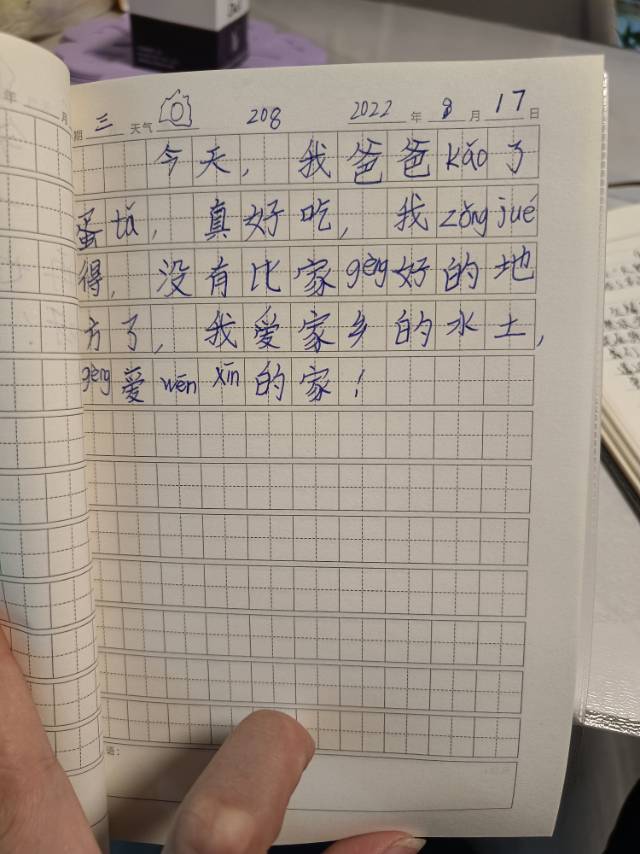 年 月
期 三 天气 208 2022 年 8 月 17 日
今天，我爸爸kǎo了
蛋tǎ，真好吃，我zǒngjué
得，没有比家gèng好的地
方了，我爱家乡的水土，
gèng爱wēn xīn的家！
语：